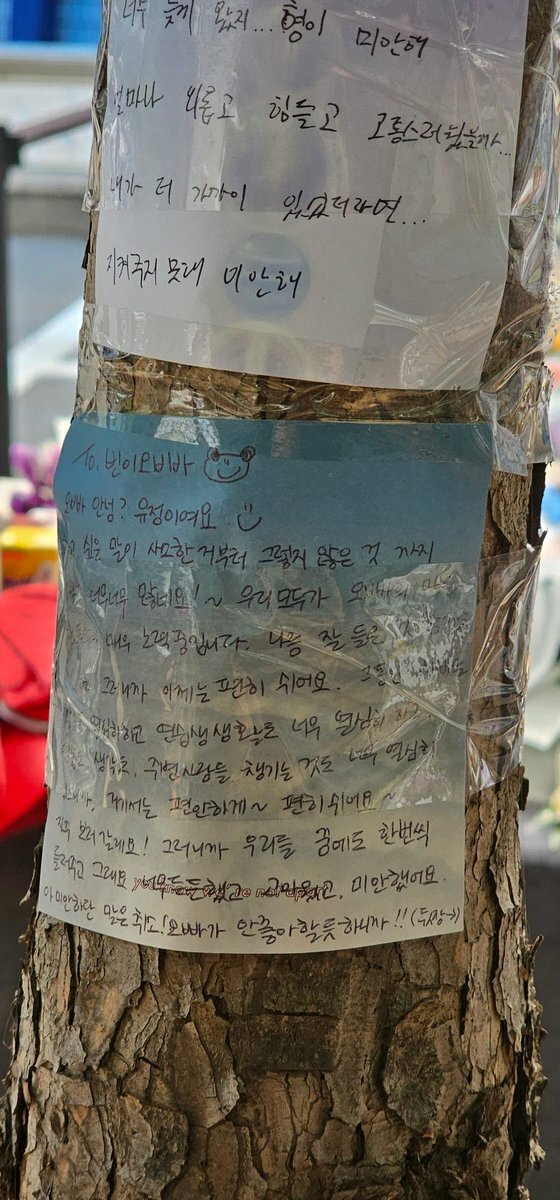 너무 늦게 왔지... 형이 미안해
얼마나 외롭고 힘들고 고통스러웠을까...
내가 더 가까이 있었더라면...
지켜주지 못해 미안해
To. 빈이오빠
오빠 안녕? 유정이에요
싶은 말이 사소한 거부터 그렇지 않은 것 까지
너무너무 많네요! ~ 우리 모두가 오빠의
매우 노력중입니다. 나중 잘
그러니까 이제는 편히 쉬어요.
열심히하고 연습생 생활도 너무 열심히
주변사람들 챙기는 것도 너무 열심히
거기서는 편안하게~ 편히 쉬어요~
보러 갈게요! 그러니까 우리들 꿈에도 한번씩
들려주고 그래요 너무든든했고 고마웠고, 미안했어요.
아 미안하단 말은 취소! 오빠가 안좋아할듯하니까!!